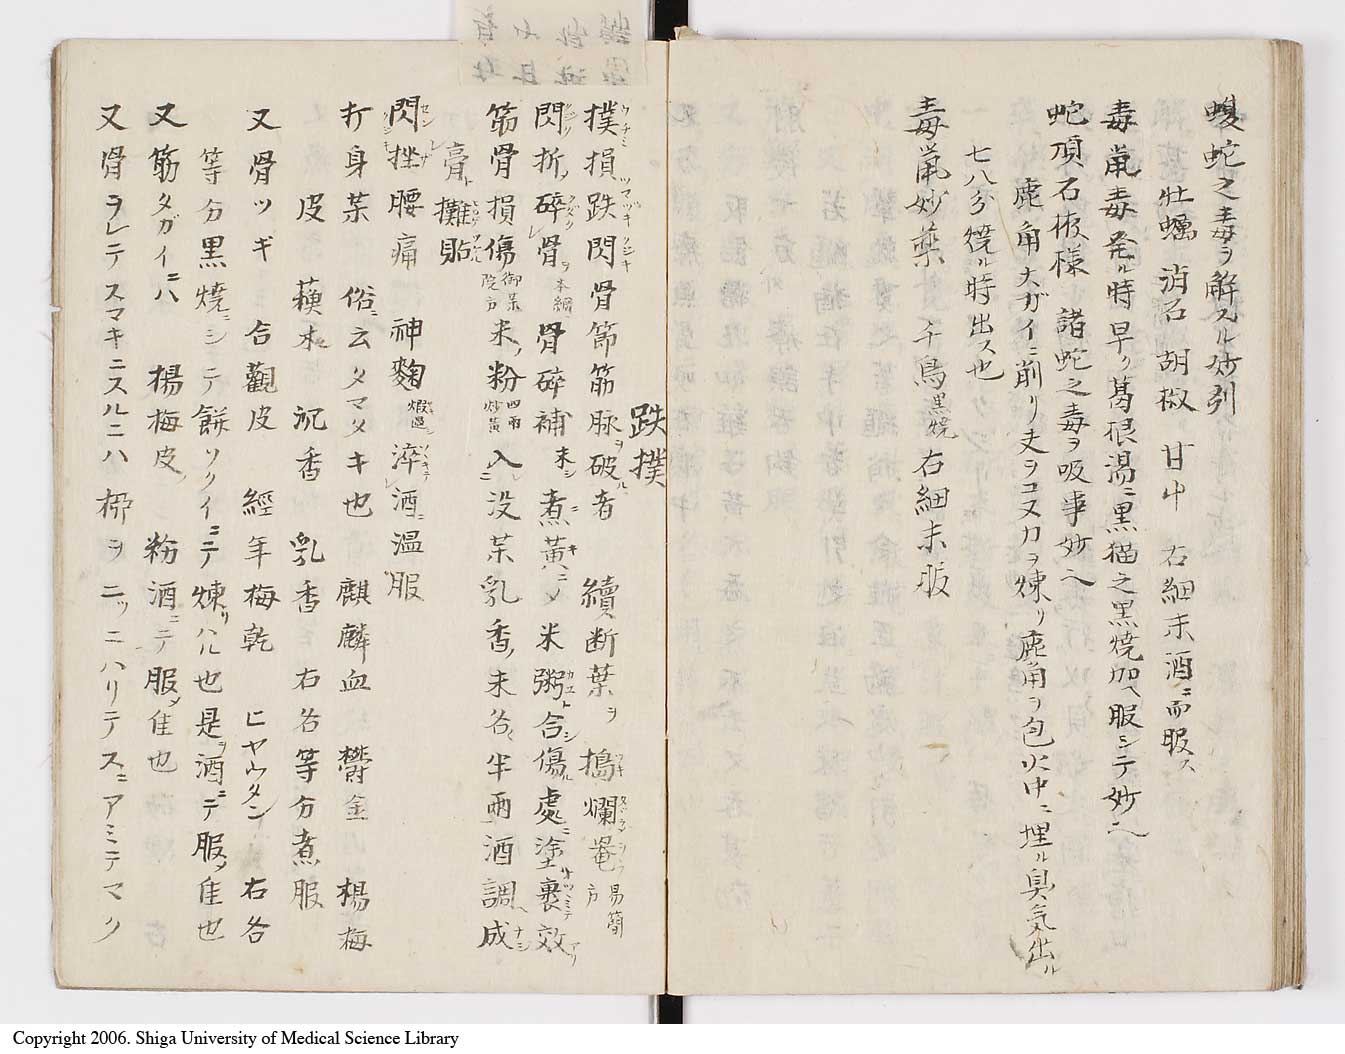 蝮蛇之毒ヲ解スル妙剤
牡蠣 消石 胡椒 甘中 右細末酒ニ而服ス
毒鼠毒発ル時早ク葛根湯ニ黒猫之黒焼加ヘ服シテ妙也
蛇頂石扱様 諸蛇之毒ヲ吸事妙也
鹿角大ガイニ削リ夫ヲコヌカヲ煉リ鹿角ヲ包火中ニ埋ル臭気出ル
七八分焼ル時出ス也
毒鼠妙薬 千鳥黒焼右細末服
跌撲
撲損跌閃骨節筋脉ヲ破ル者 續断葉ヲ搗爛罨 易簡方
閃折碎骨ヲ 本綱 骨碎補末シ煮黄ニメ米粥ト合シ傷ル處ニ塗裹效アリ
筋骨損傷 御薬院方 米ノ粉四両炒黄入ニ没薬乳香ノ末各半両酒調成
膏ト攤貼
閃挫腰痛 神麹煆過淬酒ニ温服
打身薬 俗ニ云タマタキ也 麒麟血 欝金 楊梅
皮 蘓木 沉香 乳香 右各等分煮服
又骨ツギ 合歡皮 經年梅乾 ヒヤウタン 右各
等分黒焼ニシテ餅ソクイニテ煉リハル也是ヲ酒ニテ服メ佳也
又筋タガイニハ 楊梅皮ノ粉酒ニテ服メ佳也
又骨ヲレテスマキニスルニハ 栁ヲニツニハリテスニアミテマク
Copyright 2006. Shiga University of Medical Science Library